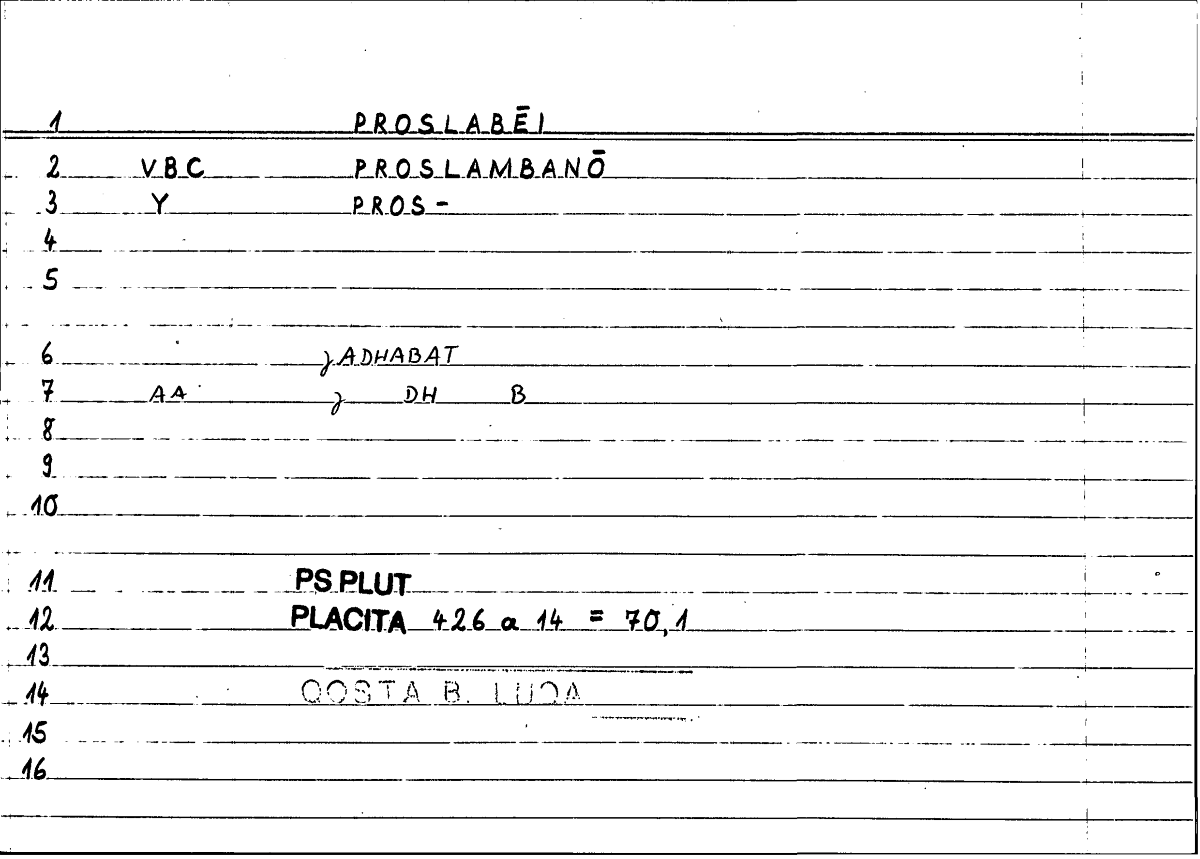 1 PROSLABĒI
2 VBC PROSLAMBANŌ
3 Y PROS-
4
5
6 ȝADHABAT
7 AA ȝ DH B
8
9
10
11 PS PLUT
12 PLACITA 426 a 14 = 70,1
13
14 QOSTA B. LUQA
15
16